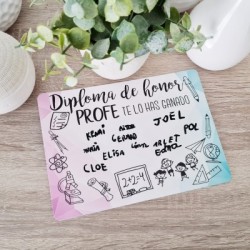 Diploma de honor
PROFE TE LO HAS GANADO
JOEL
REMI
GERARD
POL
MARIA
ELISA
ARLET
CLOE
2+2=4